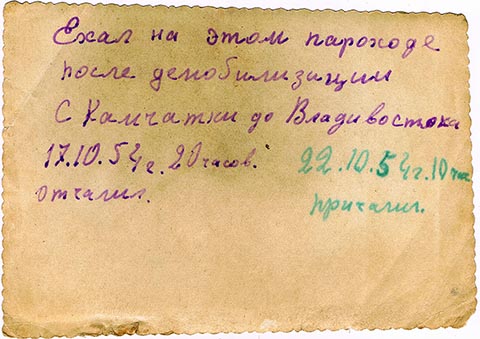 Ехал на этом пароходе
после демобилизации
С Камчатки до Владивостока
17.10.54 г. 20 часов.
отчалил.
22.10.54 г. 10 час
причалил.